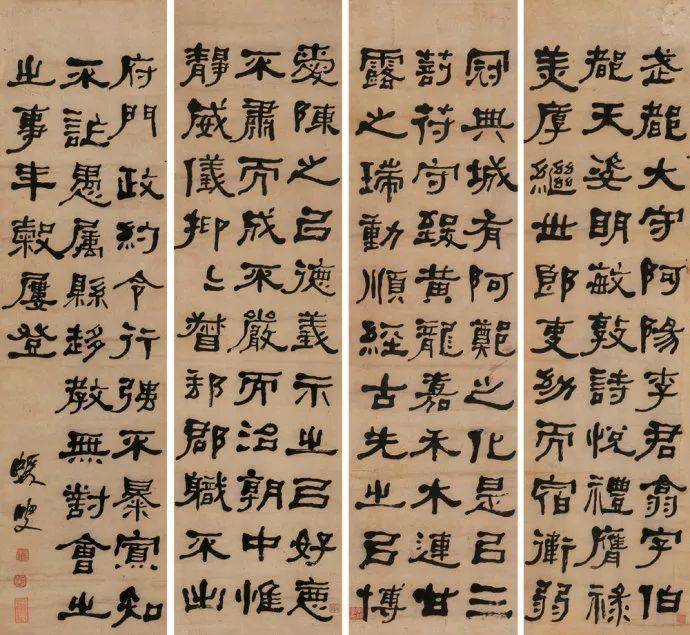 武都大守阿陽李君翕字伯
都天姿明敏敦詩悅禮膺祿
美厚繼世郎吏幼而宿衛弱
冠典城有阿鄭之化是㠯三
剖符守致黃龍嘉禾木連甘
露之瑞動順經古先之㠯博
愛陳之㠯德義示之㠯好惡
不肅而成不嚴而治朝中惟
靜威儀抑〻督郡職不出
府門政約令行強不暴寡知
不詐愚屬縣趍教無對會之
之事年穀屢登
蝯叟